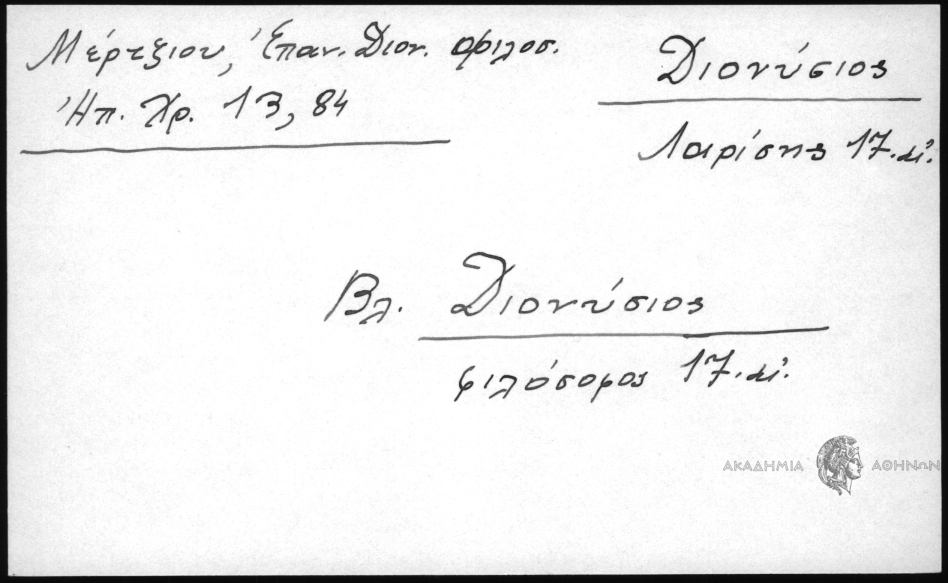 Μέρτζιου, Ἐπαν. Διον. φιλοσ.
Ἠπ. Χρ. 13, 84
Διονύσιος
Λαρίσης 17. αἰ.
Βλ. Διονύσιος
φιλόσοφος 17. αἰ.
ΑΚΑΔΗΜΙΑ ΑΘΗΝΩΝ